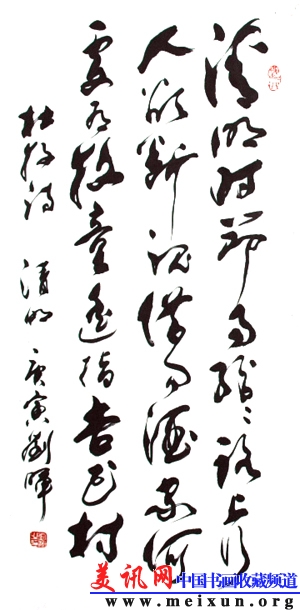 清明时节雨纷〻路上行
人欲断魂借问酒家何
處有牧童遥指杏花村
杜牧诗 清明 庚寅劉暉
美讯网
中国书画收藏频道
www.meixun.org